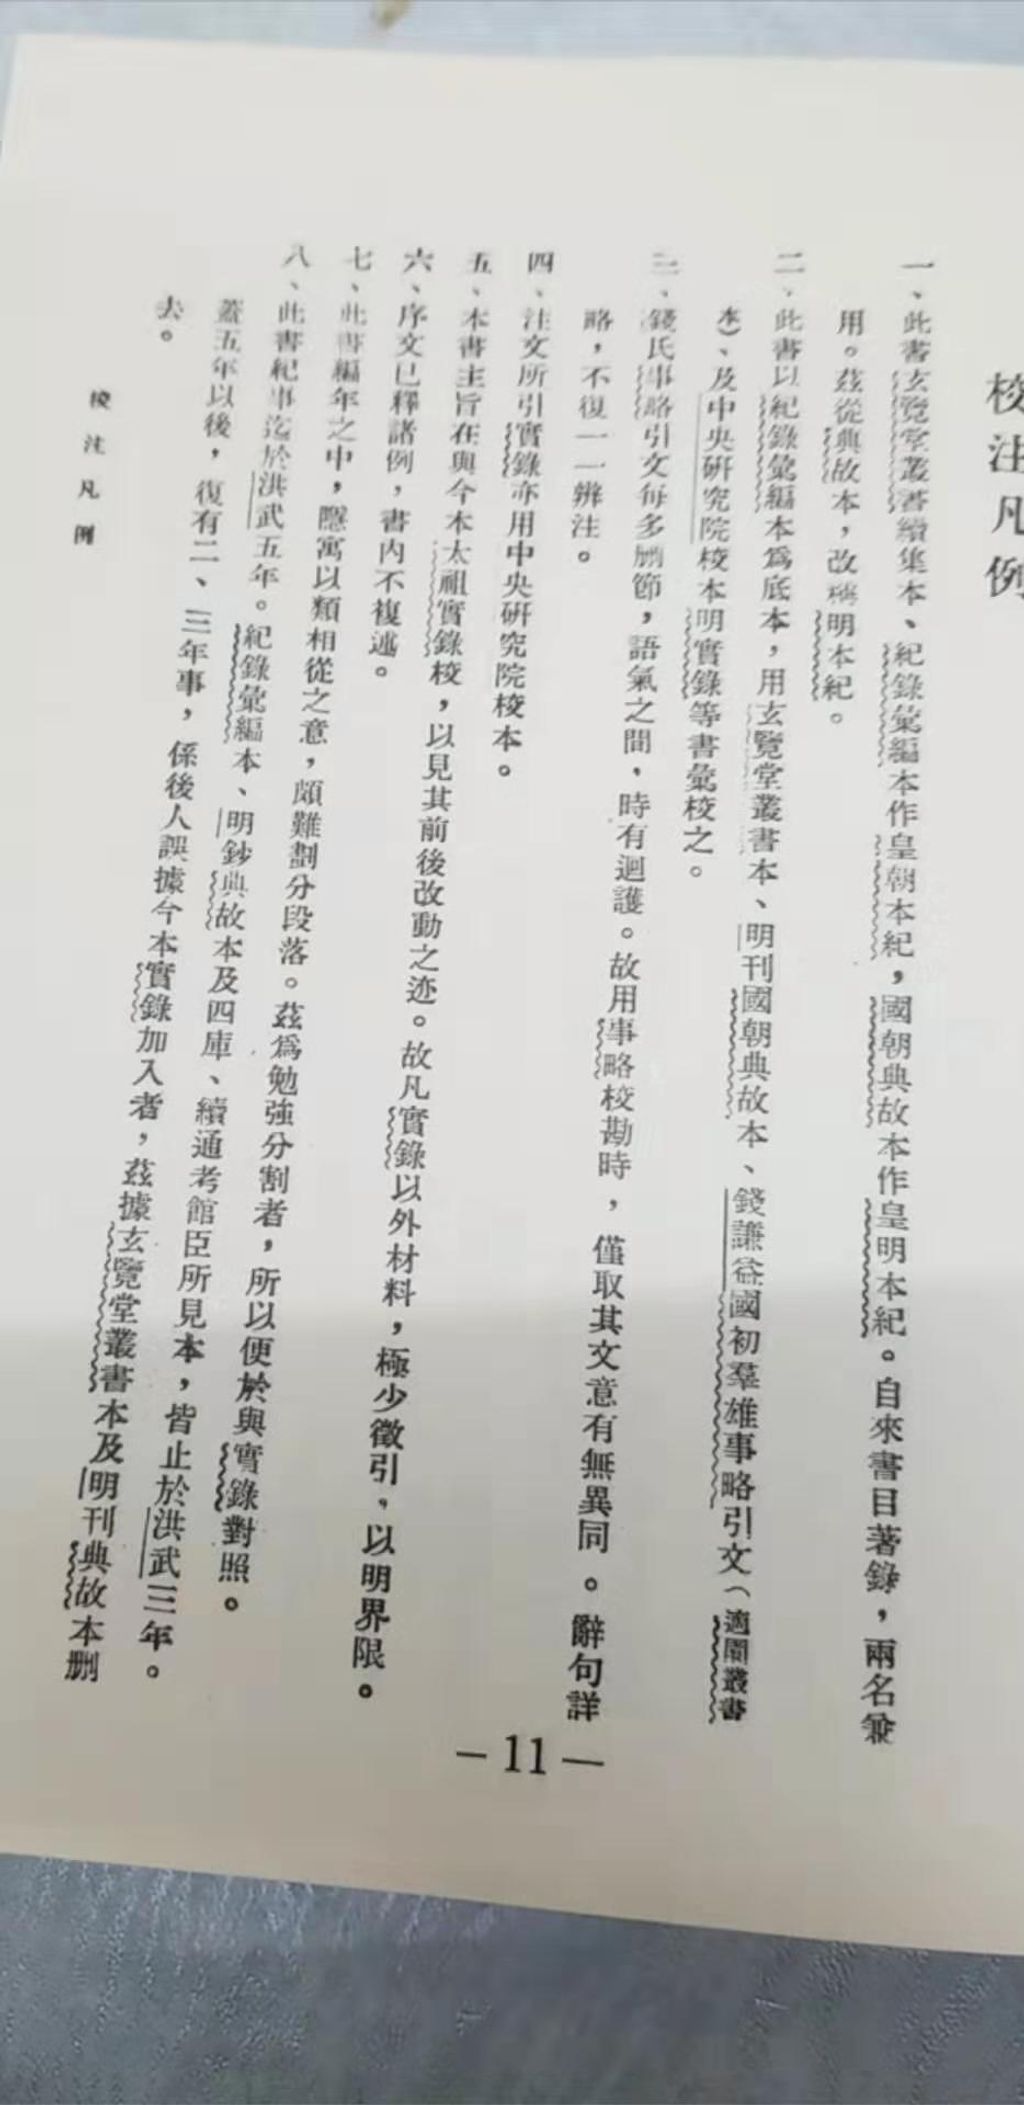 校注凡例
一、此書玄覽堂叢書續集本、紀錄彙編本作皇朝本紀，國朝典故本作皇明本紀。自來書目著錄，兩名兼
用。茲從典故本，改稱明本紀。
二、此書以紀錄彙編本爲底本，用玄覽堂叢書本、明刊國朝典故本、錢謙益國初羣雄事略引文（適園叢書
本）、及中央研究院校本明實錄等書彙校之。
三、錢氏事略引文每多刪節，語氣之間，時有迴護。故用事略校勘時，僅取其文意有無異同。辭句詳
略，不復一一辨注。
四、注文所引實錄亦用中央研究院校本。
五、本書主旨在與今本太祖實錄校，以見其前後改動之迹。故凡實錄以外材料，極少徵引，以明界限。
六、序文已釋諸例，書內不複述。
七、此書編年之中，隱寓以類相從之意，頗難劃分段落。茲爲勉強分割者，所以便於與實錄對照。
八、此書紀事迄於洪武五年。紀錄彙編本、明鈔典故本及四庫、續通考館臣所見本，皆止於洪武三年。
蓋五年以後，復有二、三年事，係後人誤據今本實錄加入者，茲據玄覽堂叢書本及明刊典故本删
去。
校注凡例
—11—